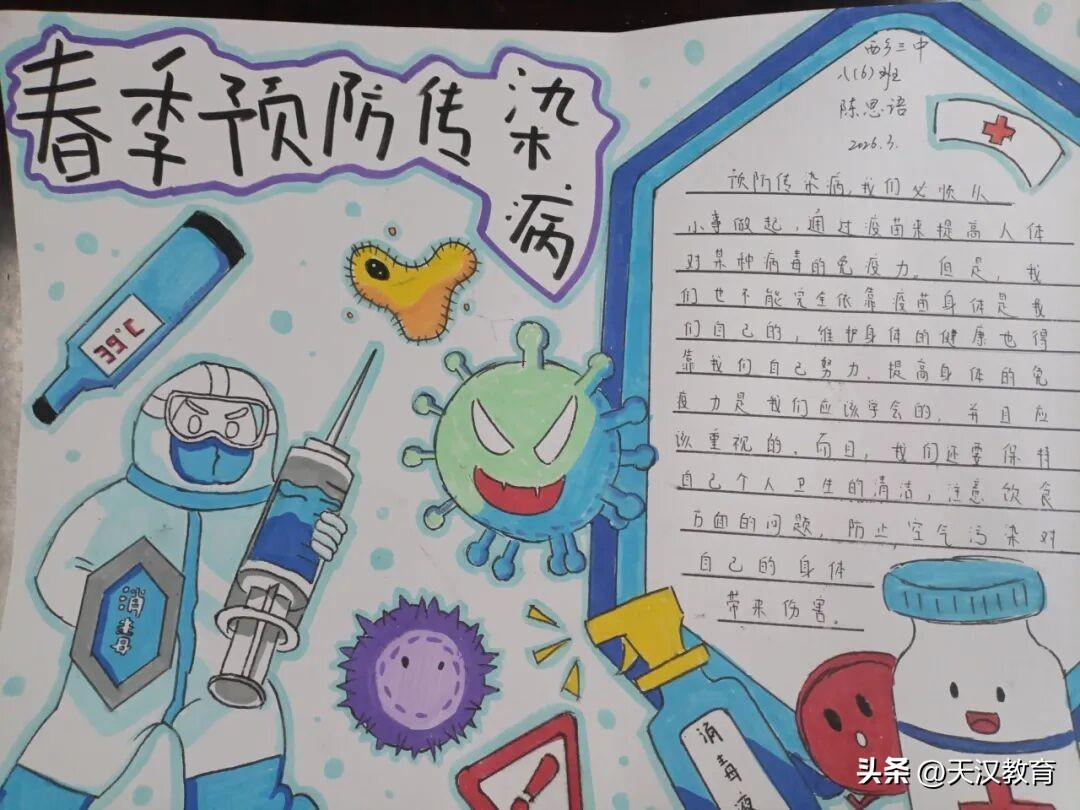 春季预防传染病
西乡三中
八(6)班
陈思语
2026.3.
预防传染病,我们必须从
小事做起,通过疫苗来提高人体
对某种病毒的免疫力。但是,我
们也不能完全依靠疫苗身体是我
们自己的,维护身体的健康也得
靠我们自己努力。提高身体的免
疫力是我们应该学会的,并且应
该重视的。而且,我们还要保持
自己个人卫生的清洁,注意饮食
方面的问题,防止空气污染对
自己的身体
带来伤害。
39℃
消毒
消毒液
头条 @天汉教育